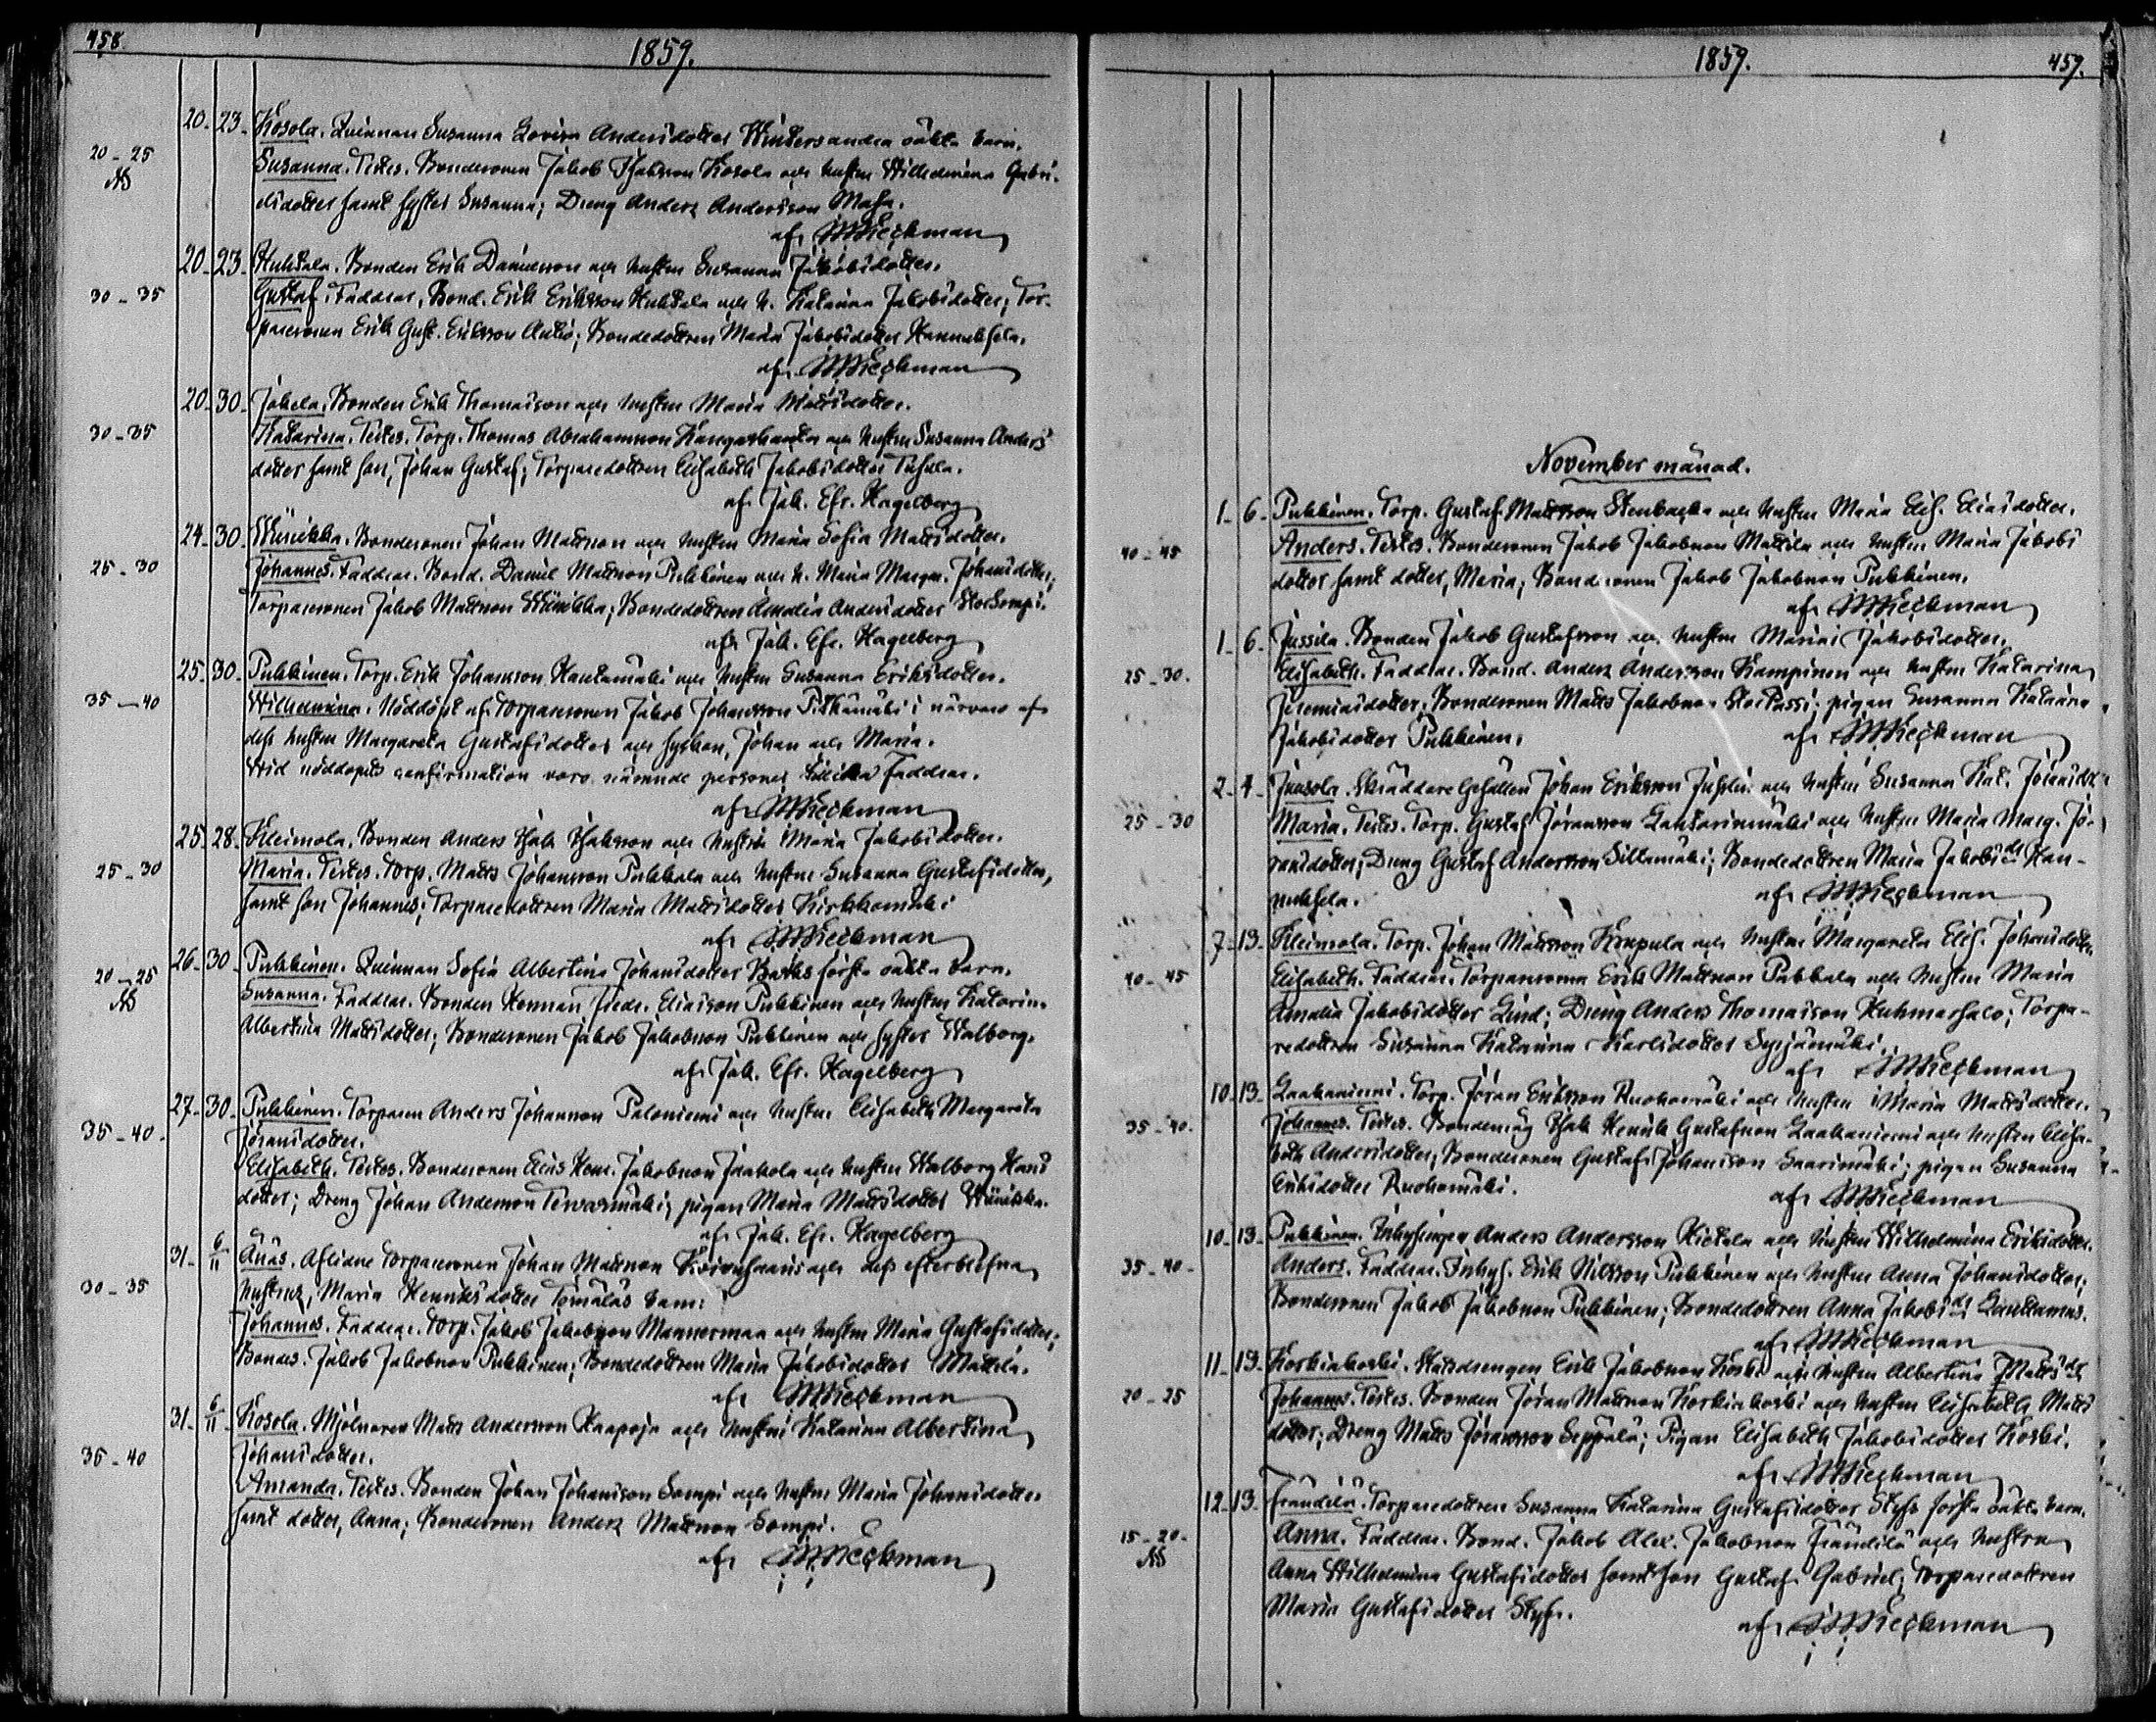 458
1859.
20-23- Kosola. Qvinnan Susanna Lovisa Andersdotter Wintersandra oäkta barn.
20-25 Susanna. Testes. Bondesonen Jakob Jakobsson Kosola och hustru Wilhelmina Gabri-
elsdotter samt syster Susanna; Dreng Anders Andersson
af
20-23- Huhtala. Bonden Erik Danielsson och hustru Susanna Jakobsdotter.
30-35 Gustaf. Faddrar, Bond. Erik Eriksson Huhtala och h. Katarina Jakobsdotter; Tor-
paresonen Erik Gust. Eriksson Antio; Bondedottren Maria Jakobsdotter Hannuksela.
af
20-30- Jakela. Bonden Erik Thomasson och hustru Maria Mattsdotter.
30-35 Katarina. Testes. Torp. Thomas Abrahamsson Kangasharju och hustru Susanna Anders
dotter samt son, Johan Gustaf; Torparedottren Elisabeth Jakobsdotter
af Joh. Efr. Hagelberg
24-30- Bondesonen Johan Mattsson och hustru Maria Sofia Mattsdotter.
25-30 Johannes. Faddrar. Bond. Daniel Mattsson Pukkinen och h. Maria Margr. Johansdotter;
Torparesonen Jakob Mattsson; Bondedottren Amalia Andersdotter StorSompi.
af Joh. Efr. Hagelberg
25-30- Pukkinen. Torp. Erik Johansson Hautamäki och hustru Susanna Eriksdotter.
35-40 Wilhelmina. Nöddöpt af Torparesonen Jakob Johansson Pitkämäki i närvaro af
dess hustru Margareta Gustafsdotter och syskon, Johan och Maria.
Wid nöddopets confirmation voro nämnde personer Faddrar.
af
25-28- Kleimola. Bonden Anders Jakobsson och hustru Maria Jakobsdotter.
25-30 Maria. Testes. Torp. Matts Johansson Pukkala och hustru Susanna Gustafsdotter,
samt son Johannes; Torparedottren Maria Mattsdotter Kirkkomäki
af
26-30- Pukkinen. Qvinnan Sofia Albertina Johansdotter Backs första oäkta barn.
20-25 Susanna. Faddrar. Bonden Herman Fredr. Eliasson Pukkinen och hustru Katarina
Albertina Mattsdotter; Bondesonen Jakob Jakobsson Pukkinen och syster Walborg.
af Joh. Efr. Hagelberg
27-30- Pukkinen. Torparen Anders Johansson Paloniemi och hustru Elisabeth Margareta
35-40- Jöransdotter.
Elisabeth. Testes. Bondesonen Elias Henr. Jakobsson Jaakola och hustru Walborg Hans
dotter; Dreng Johan Andersson Tervasmäki; pigan Maria Mattsdotter
af Joh. Efr. Hagelberg
31- 6/11 Änäs. Aflidne Torparesonen Johan Mattsson och dess efterlefna
30-35 hustrus, Maria Henriksdotter Tomälas barn:
Johannes. Faddrar. Torp. Jakob Jakobsson Mannermaa och hustru Maria Gustafsdotter;
Bondes. Jakob Jakobsson Pukkinen; Bondedottren Maria Jakobsdotter Mattila.
af
31- 6/11 Kosola. Mjölnaren Matts Andersson Haapoja och hustru Katarina Albertina
35-40 Johansdotter.
Amanda. Testes. Bonden Johan Johansson Sompi och hustru Maria Johansdotter
samt dotter, Anna; Bondesonen Anders Mattsson Sompi.
af
1859.
459.
November månad.
1-6- Pukkinen. Torp. Gustaf Mattsson Stenbacka och hustru Maria Elis. Eliasdotter.
40-45 Anders. Testes. Bondesonen Jakob Jakobsson Mattila och hustru Maria Jakobs
dotter samt dotter, Maria; Bondesonen Jakob Jakobsson Pukkinen.
af
1-6- Jussila. Bonden Jakob Gustafsson och hustru Maria Jakobsdotter.
25-30. Elisabeth. Faddrar. Bond. Anders Andersson Kampinen och hustru Katarina
Jeremiasdotter; Bondesonen Matts Jakobsson StorPassi; pigan Susanna Katarina
Jakobsdotter Pukkinen. af
2-4- Junsola. Skräddare Gesällen Johan Eriksson och hustru Susanna Kat. Jöransdr
25-30 Maria. Testes. Torp. Gustaf Jöransson Lantarinmäki och hustru Maria Marg. Jö-
ransdotter; Dreng Gustaf Andersson Sillamäki; Bondedottren Maria Jakobsdr Han-
nuksela. af
7-13- Kleimola. Torp. Johan Mattsson Krapula och hustru Margareta Elis. Johansdotter
40-45 Elisabeth. Faddrar. Torparesonen Erik Mattsson Pukkala och hustru Maria
Amalia Jakobsdotter Lind; Dreng Anders Thomasson Kuhmasalo; Torpa-
redottren Susanna Katarina Karlsdotter Syrjämäki.
af
10-13- Laakaniemi. Torp. Jöran Eriksson Ruohomäki och hustru Maria Mattsdotter.
35-40- Johannes. Testes. Bondemåg Isak Henrik Gustafsson Laakaniemi och hustru Elisa-
beth Andersdotter; Bondesonen Gustaf Johansson Saarimäki; pigan Susanna
Eriksdotter Ruohomäki. af
10-13- Pukkinen. Inhysingen Anders Andersson Hietala och hustru Wilhelmina Eriksdotter.
35-40- Anders. Faddrar. Inhys. Erik Nilsson Pukkinen och hustru Anna Johansdotter;
Bondesonen Jakob Jakobsson Pukkinen; Bondedottren Anna Jakobsdr
af
11-13- Koskinkoski. Erik Jakobsson Koski och hustru Albertina Mattsdr
20-25 Johannes. Testes. Bonden Jöran Mattsson Koskinkoski och hustru Elisabeth Matts
dotter; Dreng Matts Jöransson Seppälä; Pigan Elisabeth Jakobsdotter Koski.
af
12-13- Frändilä. Torparedottren Susanna Katarina Gustafsdotter Styfs första oäkta barn.
15-20- Anna. Faddrar. Bond. Jakob Alex. Jakobsson Frändilä och hustru
Anna Wilhelmina Gustafsdotter samt son Gustaf Gabriel; Torparedottren
Maria Gustafsdotter Styfs.
af